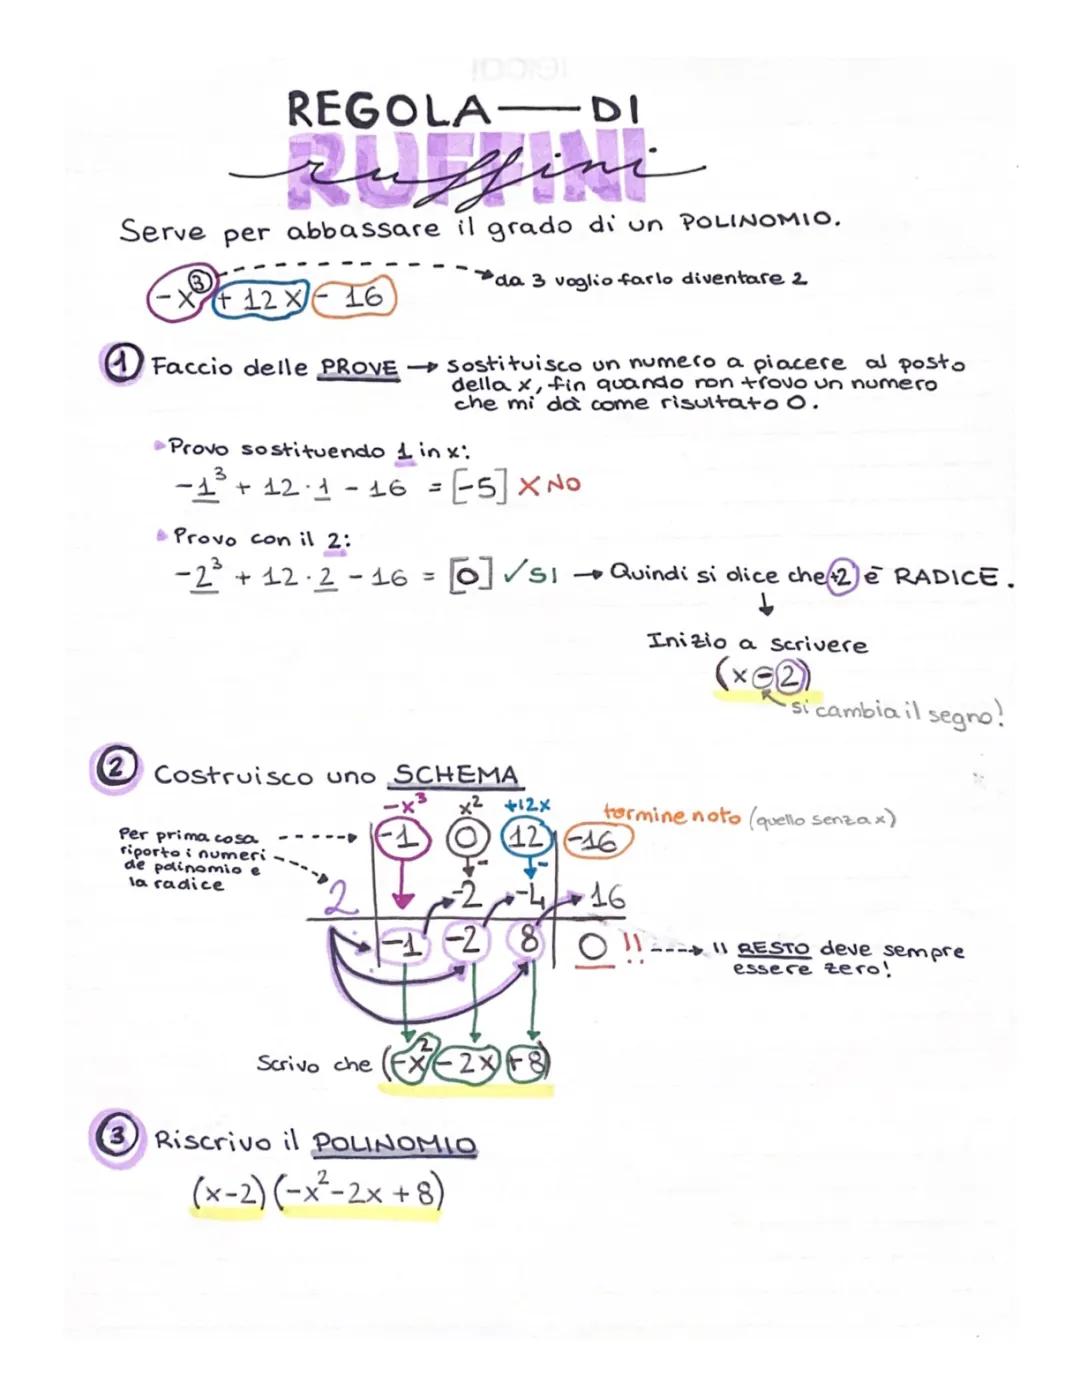 REGOLA — DI
RUFFINI
ruffini
Serve per abbassare il grado di un POLINOMIO.
-x³ + 12x - 16
da 3 voglio farlo diventare 2
1 Faccio delle PROVE → sostituisco un numero a piacere al posto
della x, fin quando non trovo un numero
che mi dà come risultato 0.
Provo sostituendo 1 in x:
-1³ + 12·1 - 16 = [-5] X NO
Provo con il 2:
-2³ + 12·2 - 16 = [0] ✓SI → Quindi si dice che +2 è RADICE.
↓
Inizio a scrivere
(x-2)
si cambia il segno!
2 Costruisco uno SCHEMA
-x³ x² +12x
termine noto (quello senza x)
Per prima cosa
riporto i numeri
de polinomio e
la radice
-1 0 12 -16
2 -2 -4 16
-1 -2 8 0 !! → Il RESTO deve sempre
essere zero!
Scrivo che (-x² - 2x + 8)
3 Riscrivo il POLINOMIO
(x-2)(-x²-2x+8)